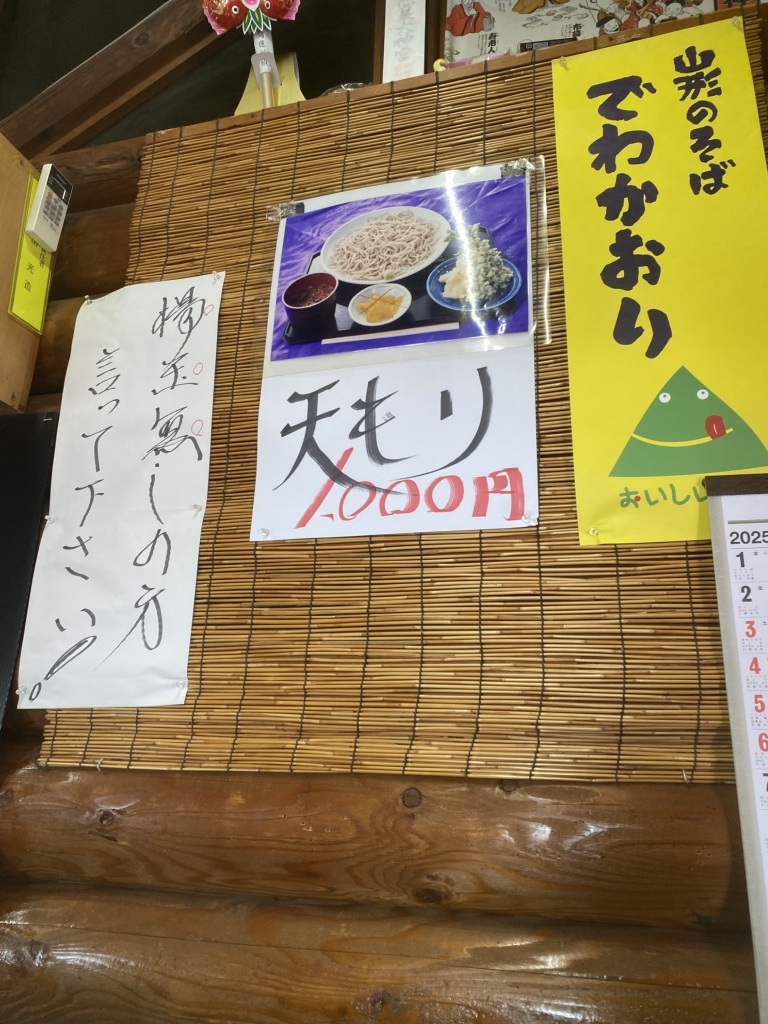 山形のそば
でわかおり
おいしい
天もり
1,000円
揚玉無しの方
言って下さい!
2025
1
2
3
4
5
6
7
寿老人
布袋